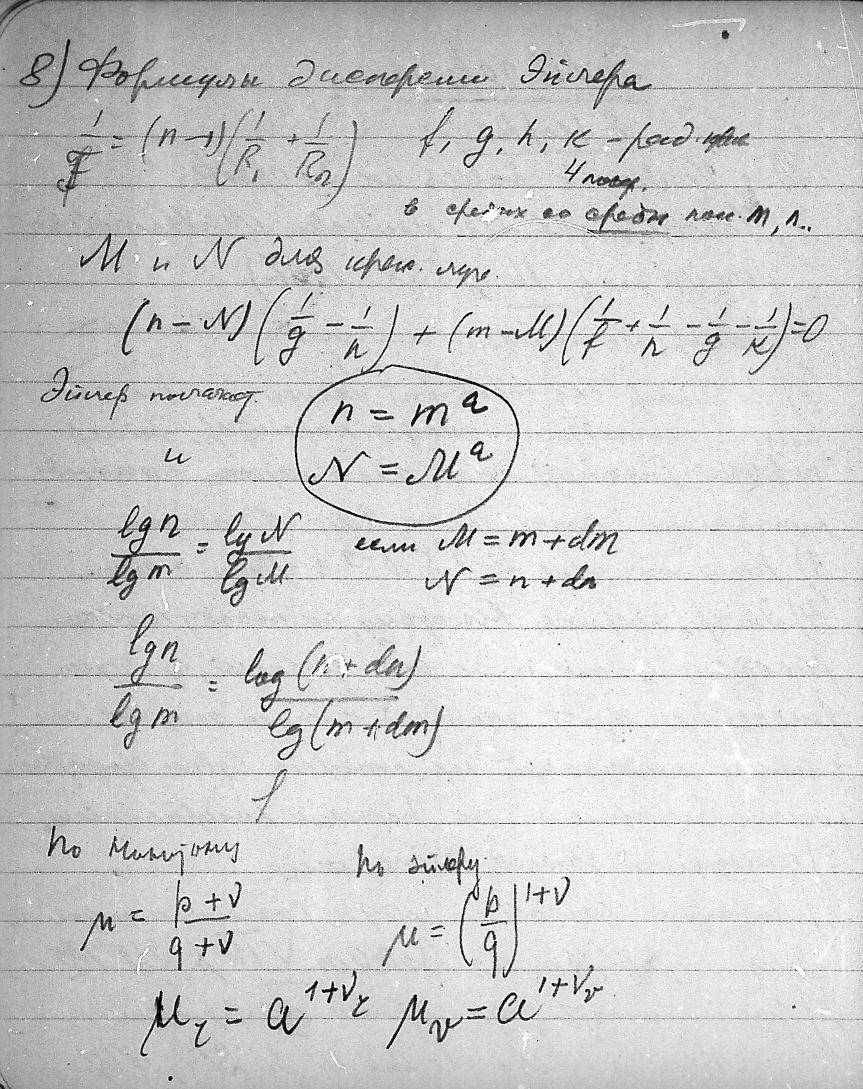 8) Формулы дисперсии Эйлера
1/F = (n-1)(1/R₁ + 1/R₂) f, g, h, k - рад.
4 пов.
в средах со средн. пок. m, n..
M и N для крас. луч.
(n - N)(1/g - 1/h) + (m - M)(1/f + 1/h - 1/g - 1/k) = 0
Эйлер полагает n = mᵃ
и N = Mᵃ
lg n / lg m = lg N / lg M если M = m + dm
N = n + dn
lg n / lg m = log (n + dn) / lg (m + dm)
По Ньютону По Эйлеру
μ = (p + ν)/(q + ν) μ = (p/q)^(1+ν)
μ_r = a^(1+ν_r) μ_v = a^(1+ν_v)